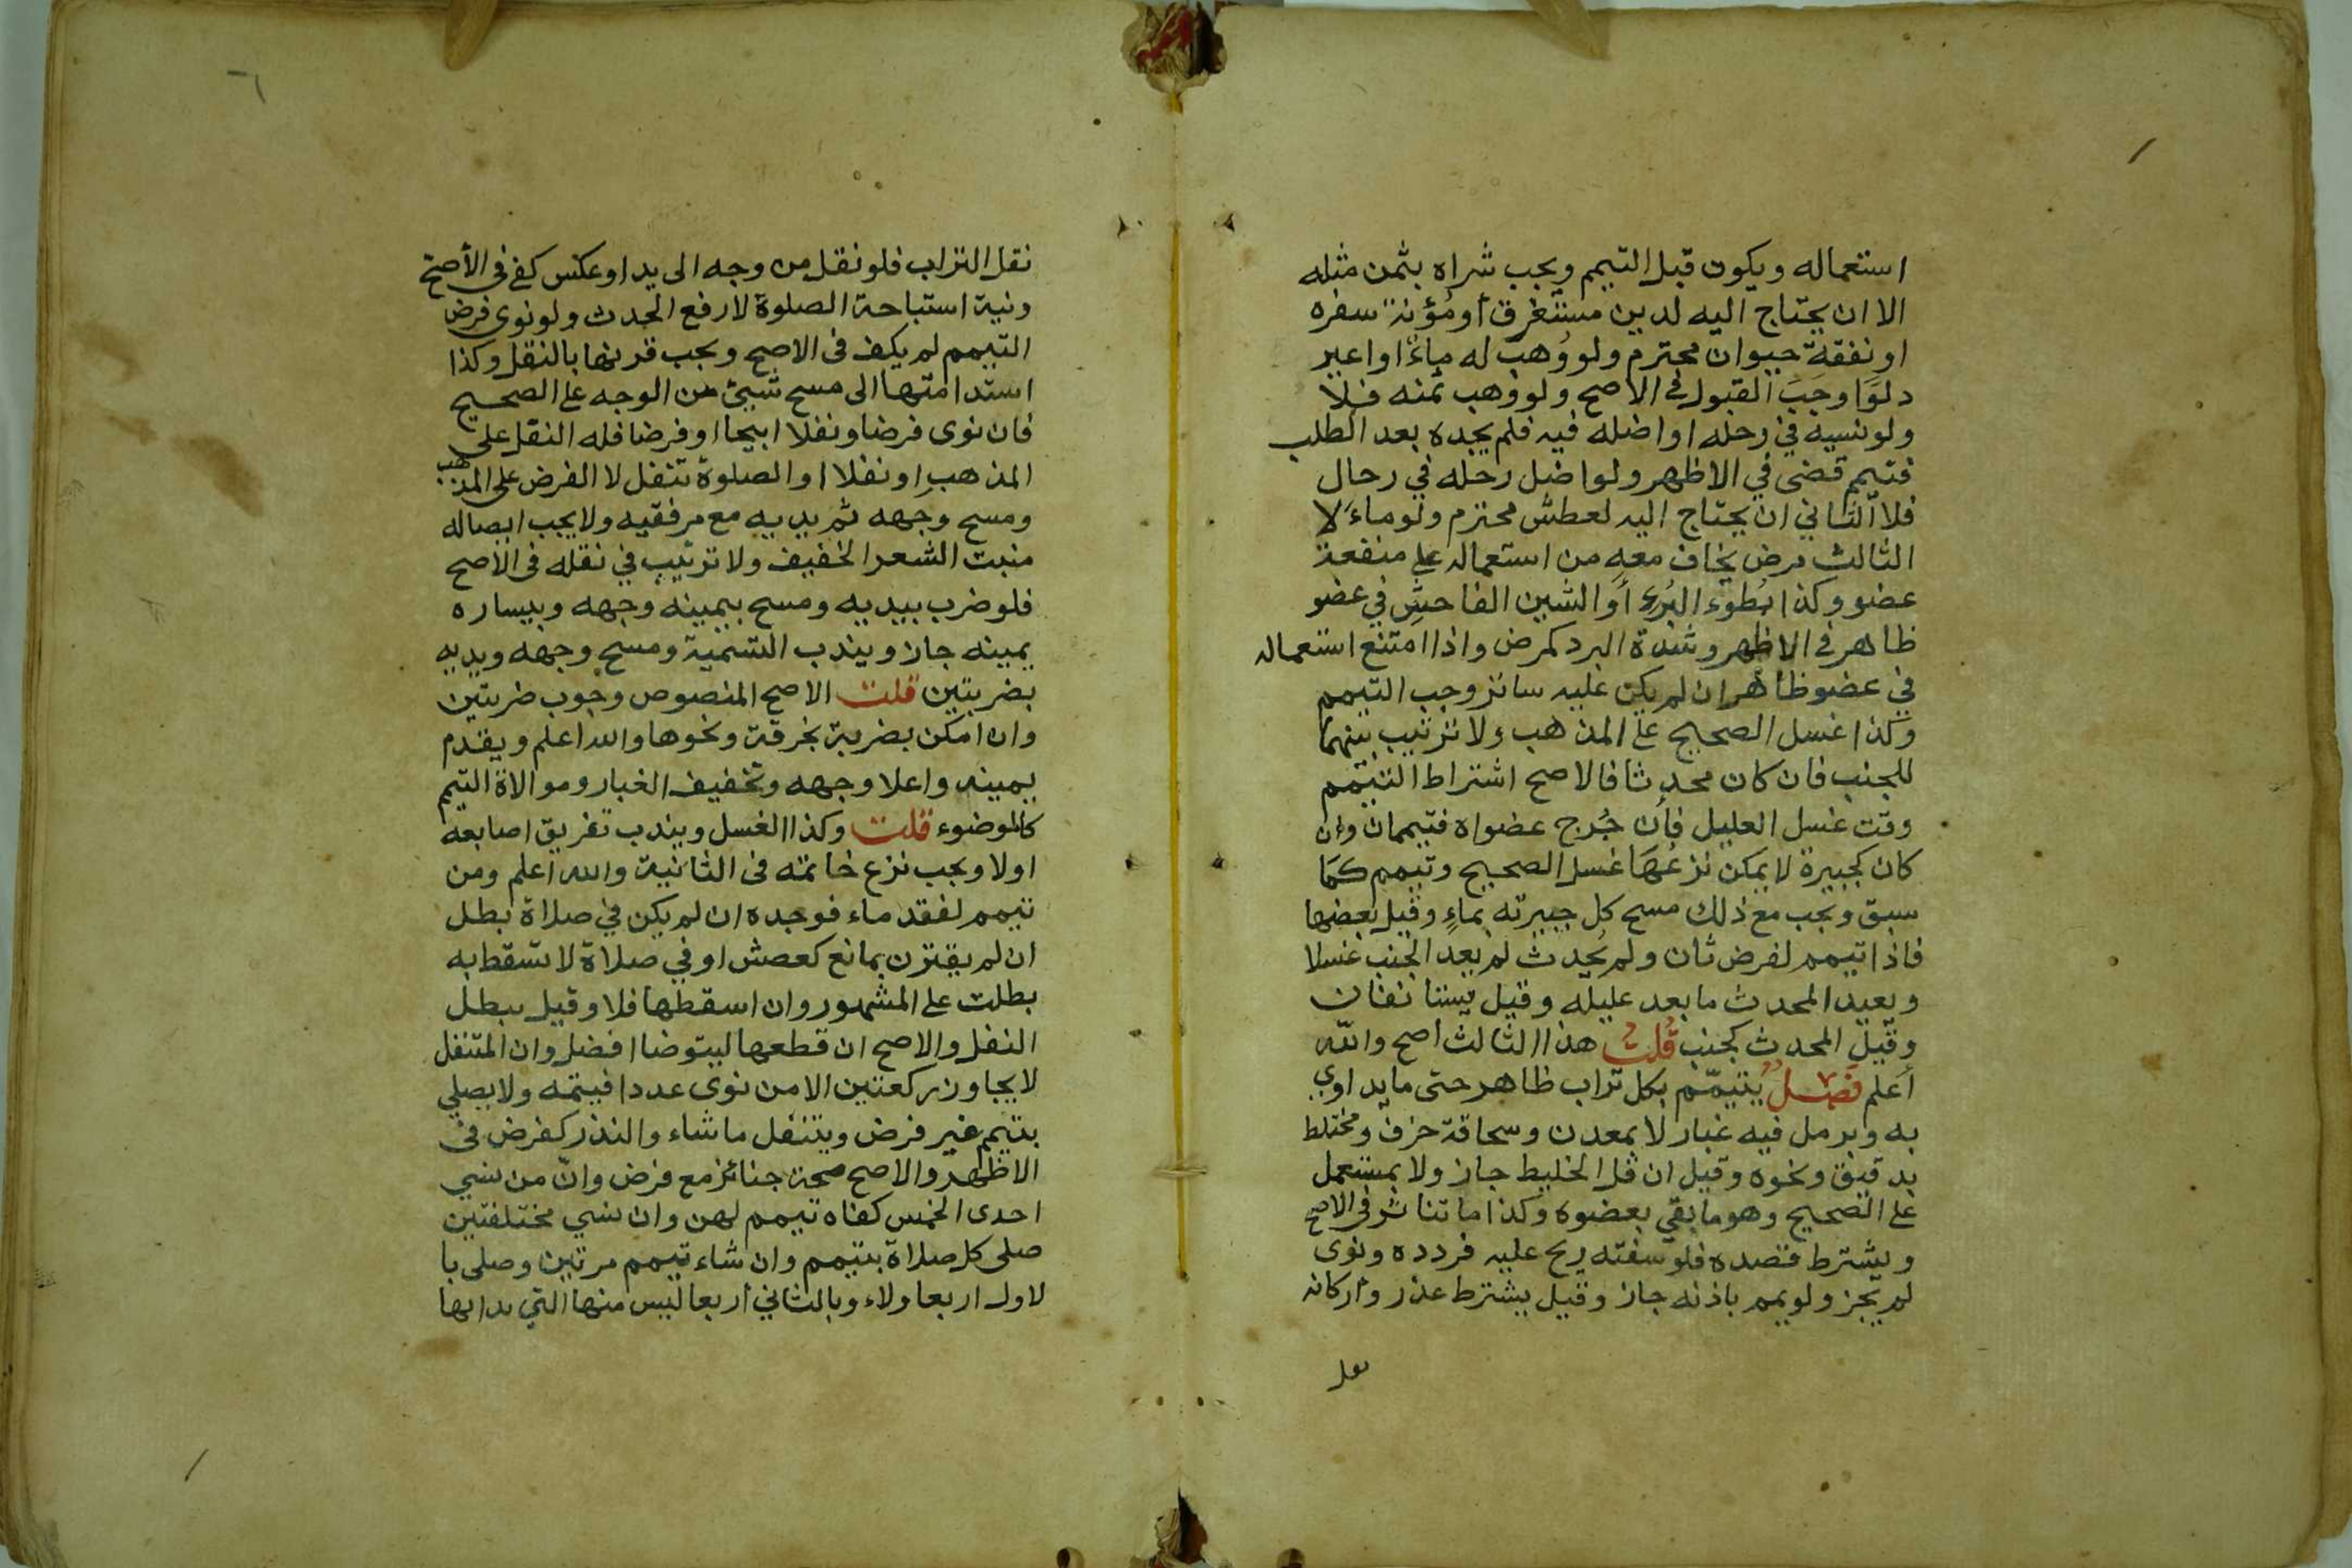 استعماله ويكون قبل التيمم ويجب شراه بثمن مثله
الا ان يحتاج اليه لدين مستغرق او مؤنة سفره
او نفقة حيوان محترم ولو وُهب له ماءً او اعير
دلوًا وجَبَ القبول في الاصح ولو وُهب ثمنه فلا
ولو نسيه في رحله او اضله فيه فلم يجده بعد الطلب
فتيمم قضى في الاظهر ولو اضل رحله في رحال
فلا الثاني ان يحتاج اليه لعطش محترم ولو ماءً لا
الثالث مرض يخاف معه من استعماله على منفعة
عضو وكذا بُطوء البُرء أو الشين الفاحشِ في عضو
ظاهر في الاظهر وشدة البرد كمرض واذا امتنع استعماله
في عضو ظاهر ان لم يكن عليه ساتر وجب التيمم
وكذا غسل الصحيح على المذهب ولا ترتيب بينهما
للجنب فان كان محدثا فالاصح اشتراط التيمم
وقت غسل العليل فأن جُرح عضواه فتيممان وإن
كان كجبيرة لا يمكن نزعُهَا غسل الصحيح وتيمم كمَا
سبق ويجب مع ذلك مسح كل جبيرته بماءٍ وقيل بعضها
فاذا تيمم لفرض ثان ولم يُحدث لم يعد الجنب غسلا
ويعيد المحدث ما بعد عليله وقيل يستانفان
وقيل المحدث كجنب قُلت هذا الثالث اصح والله
أعلم فصل يتيمّم بكل تراب ظاهر حتى ما يداوي
به وبرمل فيه غبار لا بمعدن وسحاقة خزف ومختلط
بدقيق ونحوه وقيل ان قل الخليط جاز ولا بمستعمل
على الصحيح وهو ما بقي بعضوه وكذا ما تناثر في الاصح
ويشترط قصده فلو سفته ريح عليه فردده ونوى
لم يجز ولو يمم باذنه جاز وقيل يشترط عذر واركانه
نقل
نقل التراب فلو نقل من وجه الى يد او عكس كفى في الأصح
ونية استباحة الصلوة لا رفع الحدث ولو نوى فرض
التيمم لم يكف في الاصح ويجب قرنها بالنقل وكذا
استدامتها الى مسح شيئ من الوجه على الصحيح
فان نوى فرضا ونفلا ابيحا او فرضا فله النقل على
المذهبِ او نفلا او الصلوة تنفل لا الفرض على المذهب
ومسح وجهه ثم يديه مع مرفقيه ولا يجب ايصاله
منبت الشعر الخفيف ولا ترتيب في نقله في الاصح
فلو ضرب بيديه ومسح بيمينه وجهه وبيساره
يمينه جاز ويندب التسمية ومسح وجهه ويديه
بضربتين قلت الاصح المنصوص وجوب ضربتين
وان امكن بضربة بخرقة ونحوها والله اعلم ويقدم
يمينه واعلا وجهه وتخفيف الغبار وموالاة التيمم
كالوضوء قلت وكذا الغسل ويندب تفريق اصابعه
اولا ويجب نزع خاتمه في الثانية والله اعلم ومن
تيمم لفقد ماء فوجده ان لم يكن في صلاة بطل
ان لم يقترن بمانع كعصش او في صلاة لا تسقط به
بطلت على المشهور وان اسقطها فلا وقيل يبطل
النفل والاصح ان قطعها ليتوضا افضل وان المتنفل
لا يجاوز ركعتين الا من نوى عددا فيتمه ولا يصلي
بتيمم غير فرض ويتنفل ما شاء والنذر كفرض في
الاظهر والاصح صحة جنائز مع فرض وانّ من نسي
احدى الخمس كفاه تيمم لهن وان نسي مختلفتين
صلى كل صلاة بتيمم وان شاء تيمم مرتين وصلى با
لاول اربعا ولاء وبالثاني اربعا ليس منها التي بدا بها